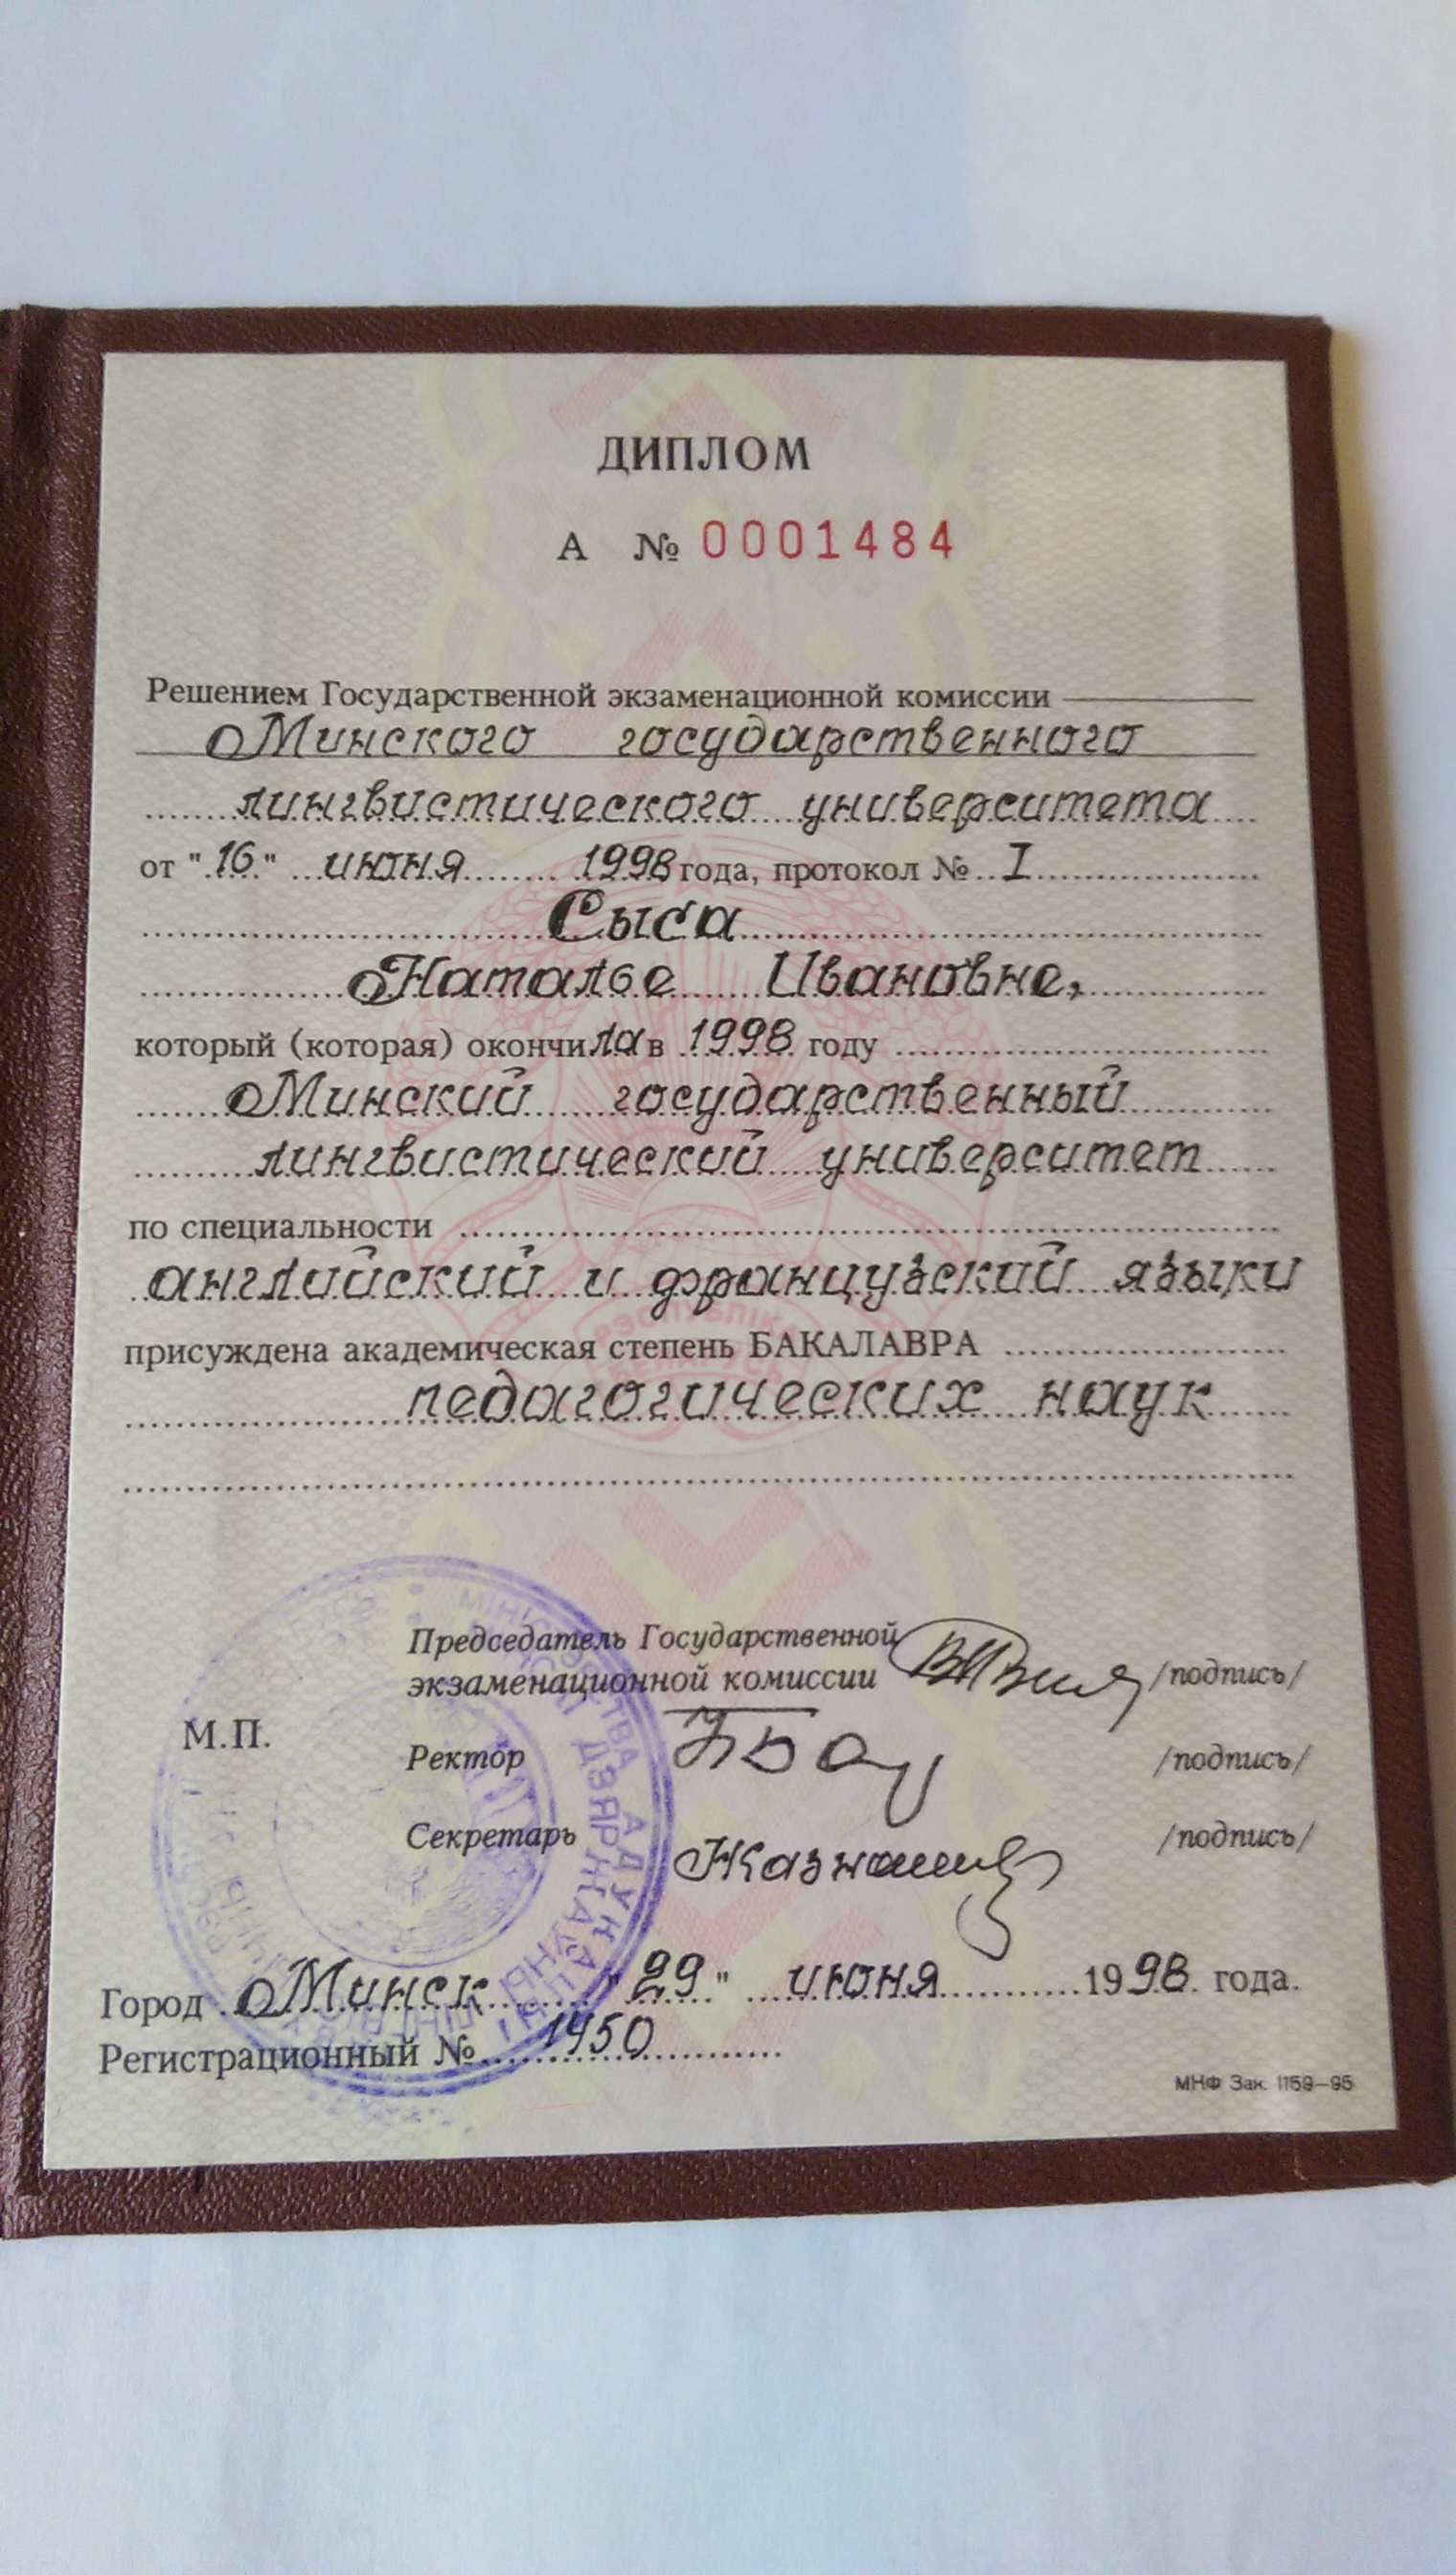 ДИПЛОМ
А № 0001484
Решением Государственной экзаменационной комиссии
Минского государственного
лингвистического университета
от "16" июня 1998 года, протокол № I
Сыса
Наталье Ивановне,
который (которая) окончила в 1998 году
Минский государственный
лингвистический университет
по специальности
английский и французский языки
присуждена академическая степень БАКАЛАВРА
педагогических наук
Председатель Государственной
экзаменационной комиссии /подпись/
М.П.
Ректор /подпись/
Секретарь /подпись/
Город Минск "29" июня 1998 года.
Регистрационный № 1450
МНФ Зак. 1159—95